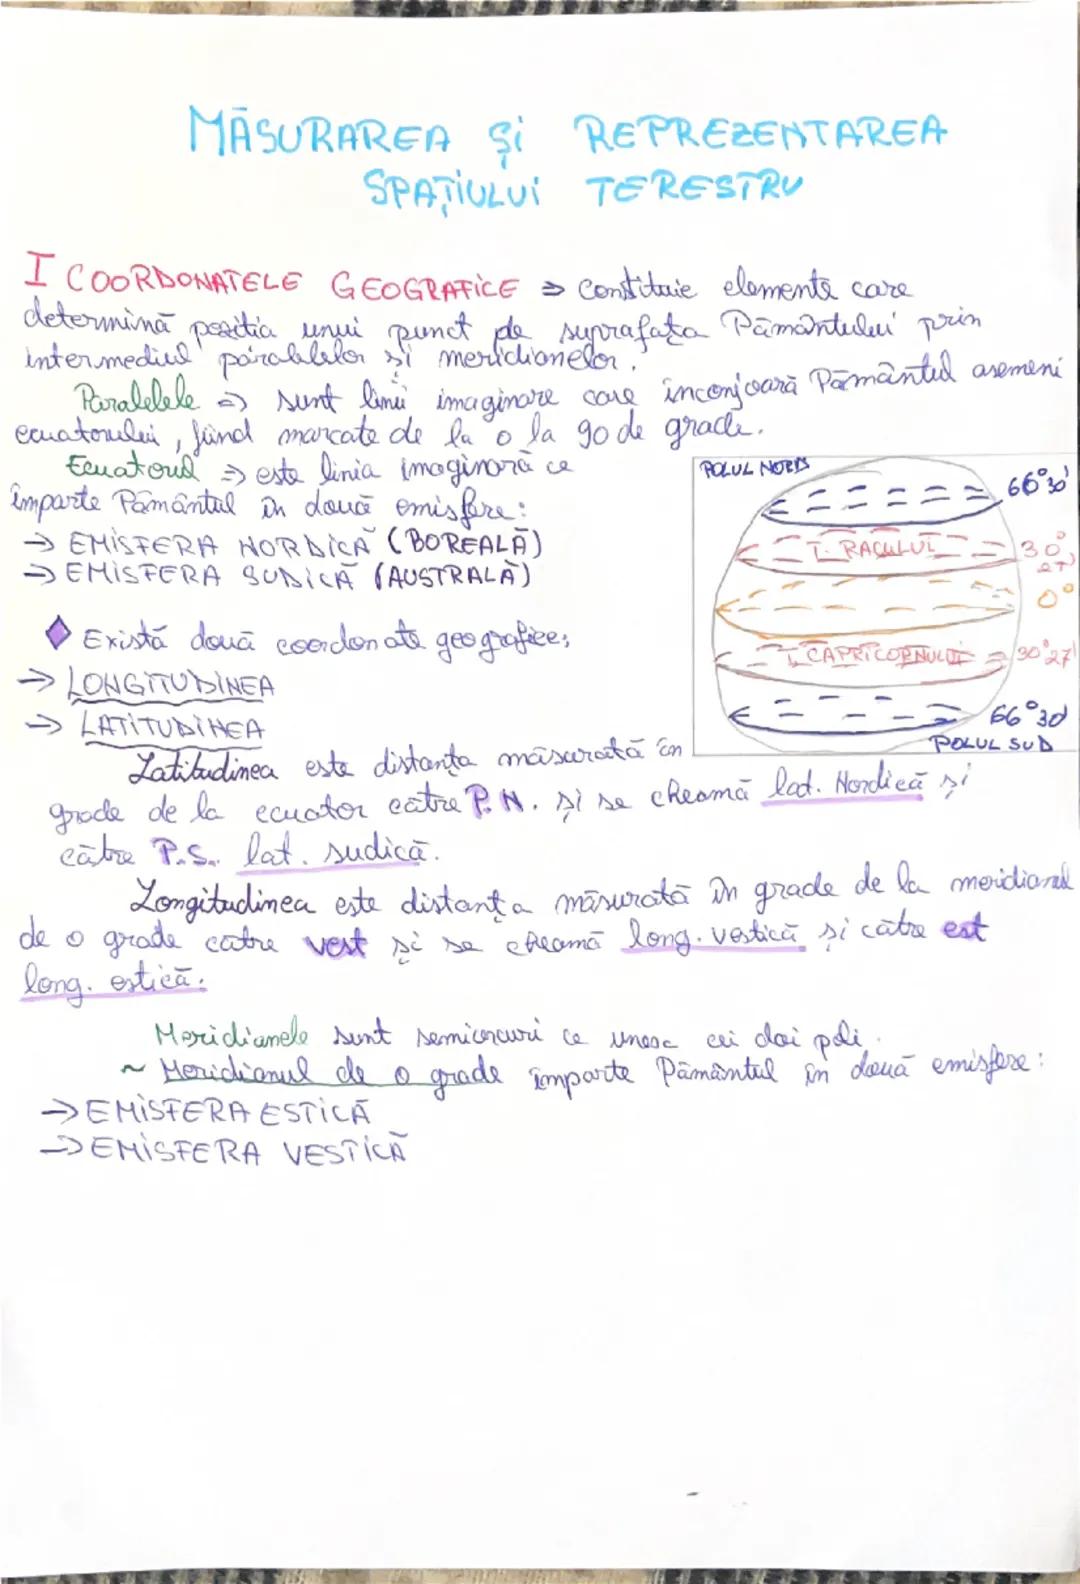 MĂSURAREA și REPREZENTAREA
SPAȚIULUI TERESTRU
I COORDONATELE GEOGRAFICE => Constituie elemente care
determină poziția unui punct pe suprafața Pământului prin
intermediul paralelelor și meridianelor.
Paralelele => sunt linii imaginare care înconjoară Pământul asemeni
ecuatorului, fiind marcate de la 0 la 90 de grade.
Ecuatorul => este linia imaginară ce
împarte Pământul în două emisfere:
→ EMISFERA NORDICĂ (BOREALĂ)
→ EMISFERA SUDICĂ (AUSTRALĂ)
POLUL NORD
66°30'
T. RACULUI
30°
27'
0°
T. CAPRICORNULUI
30°27'
66°30'
POLUL SUD
◆ Există două coordonate geografice:
→ LONGITUDINEA
→ LATITUDINEA
Latitudinea este distanța măsurată în
grade de la ecuator către P.N. și se cheamă lat. Nordică și
către P.S. lat. sudică.
Longitudinea este distanța măsurată în grade de la meridianul
de 0 grade către vest și se cheamă long. vestică și către est
long. estică.
Meridianele sunt semicercuri ce unesc cei doi poli.
~ Meridianul de 0 grade împarte Pământul în două emisfere:
→ EMISFERA ESTICĂ
→ EMISFERA VESTICĂ